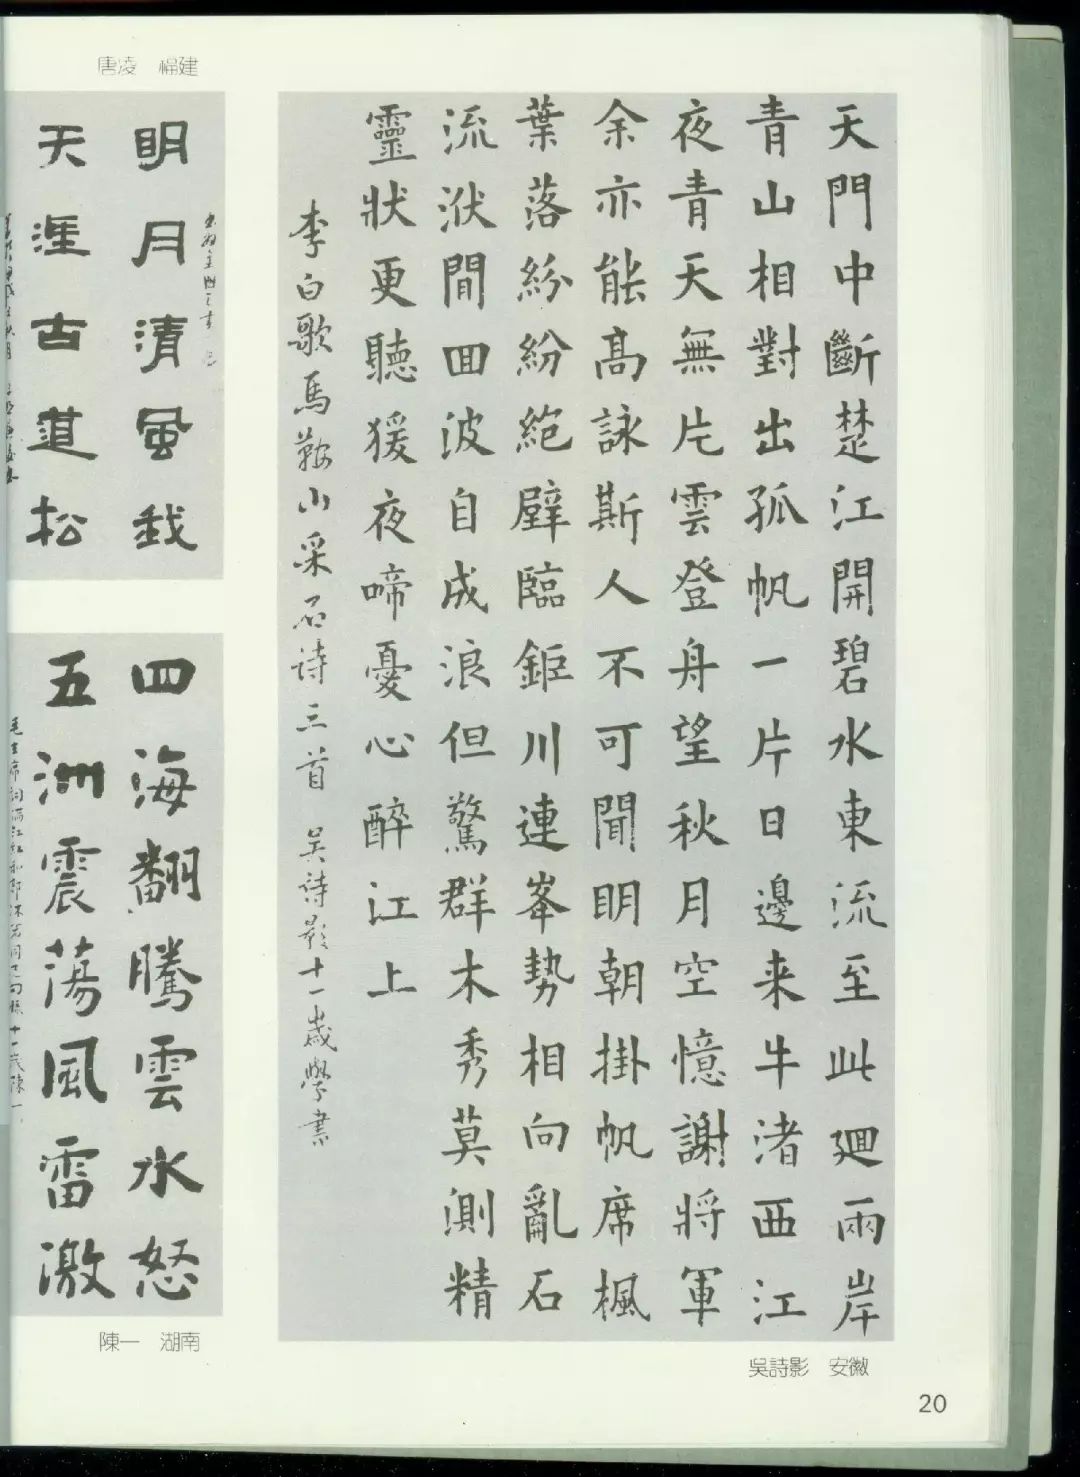 天門中斷楚江開碧水東流至此廻兩岸
青山相對出孤帆一片日邊来牛渚西江
夜青天無片雲登舟望秋月空憶謝將軍
余亦能高詠斯人不可聞明朝掛帆席楓
葉落紛紛絶壁臨鉅川連峯勢相向亂石
流洑間回波自成浪但驚群木秀莫測精
靈狀更聽猨夜啼憂心醉江上
李白歌馬鞍山采石詩三首 吴詩影十一歲學書
吳詩影 安徽
唐凌 福建
明月清風我
天涯古道松
四海翻騰雲水怒
五洲震蕩風雷激
毛主席詞滿江紅和郭沫若同志 十一歲陳一
陳一 湖南
20